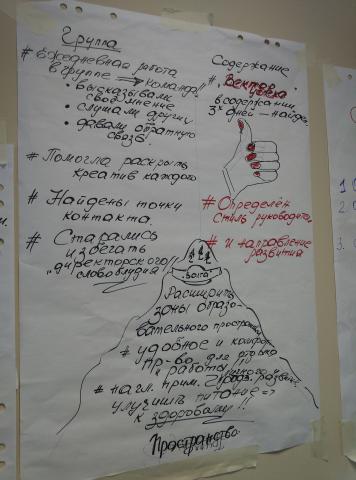 Группа
# ежедневная работа
в группе → команда!!
• высказывали
своё мнение
• слушали других
• давали обратную
связь.
# Помогла раскрыть
креатив каждого
# Найдены точки
контакта.
# Старались
избегать
"директорского
словоблудия"
Содержание
# "Вектор
успеха"
в содержании
3х дней — найден
# Определён
стиль руководит.
# и направление
развития
Расширить
зоны образо-
вательного простран
# удобное и комфорт
пр-во для отдыха
и работы
# нагл. прим.
улучшить питание =>
к здоровому!!
Пространство.